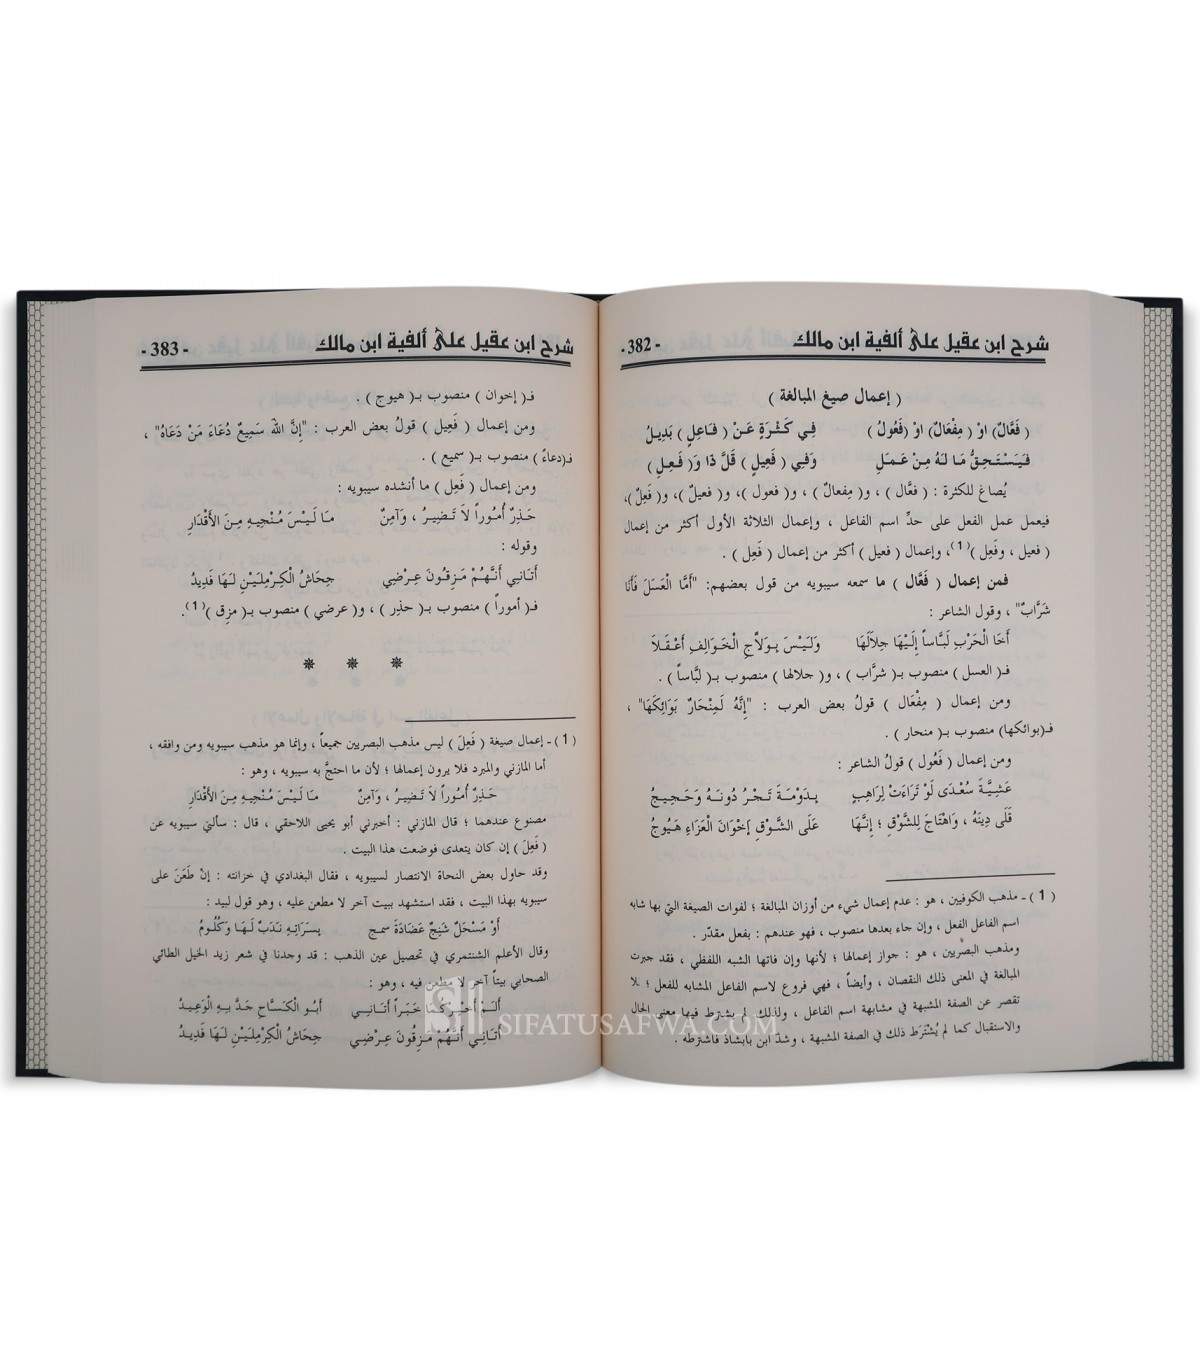 شرح ابن عقيل على ألفية ابن مالك - 382 -
( إعمال صيغ المبالغة )
( فَعَّالٌ) اوْ ( مِفْعَالٌ) اوْ (فَعُولُ ) فِي كَـثْـرَةٍ عَـنْ ( فَـاعِلٍ ) بَدِيـلُ
فَـيَـسْـتَـحِـقُّ مَـا لَـهُ مِـنْ عَـمَـلِ وَفِـي ( فَعِيلٍ ) قَلَّ ذَا وَ( فَـعِـلِ )
يُصاغ للكثرة : ( فعَّال ) ، و( مِفعالٌ ) ، و( فعول )، و( فعيلٌ )، و( فَعِلٌ )،
فيعمل عمل الفعل على حدِّ اسم الفاعل ، وإعمال الثلاثة الأول أكثر من إعمال
( فعيل ، وفَعِل )(1)، وإعمال ( فعيل ) أكثر من إعمال ( فَعِل ) .
فمن إعمال ( فَعَّال ) ما سمعه سيبويه من قول بعضهم: "أَمَّا الْعَسَلَ فَأَنَا
شَرَّابٌ" ، وقول الشاعر :
أَخَا الْحَرْبِ لَبَّاساً إِلَيْهَا جِلاَلَهَا وَلَيْسَ بِـوَلاَّجِ الْخَـوَالِفِ أَعْـقَـلاَ
فـ( العسل ) منصوب بـ( شرَّاب ) ، و( جلالها ) منصوب بـ( لبَّاساً ) .
ومن إعمال ( مِفْعَال ) قولُ بعض العرب : "إِنَّهُ لَمِنْحَارٌ بَوَائِكَهَا" ،
فـ(بوائكها) منصوب بـ( منحار ) .
ومن إعمال ( فَعُول ) قولُ الشاعر :
عَشِيَّـةَ سُعْـدَى لَوْ تَرَاءَتْ لِرَاهِبٍ بِـدَوْمَـةَ تَـجْـرُ دُونَـهُ وَحَـجِـيـجُ
قَلَى دِينَهُ ، وَاهْتَاجَ لِلشَّوْقِ ؛ إِنَّـهَا عَلَى الشَّـوْقِ إِخْوَانَ الْعَزَاءِ هَيُوجُ
( 1 ) - مذهب الكوفيين ، هو : عدم إعمال شيء من أوزان المبالغة ؛ لفوات الصيغة التي بها شابه
اسم الفاعل الفعل ، وإن جاء بعدها منصوب ، فهو عندهم : بفعل مقدَّر .
ومذهب البصريين ، هو : جواز إعمالها ؛ لأنها وإن فاتها الشبه اللفظي ، فقد جبرت
المبالغة في المعنى ذلك النقصان ، وأيضاً ، فهي فروع لاسم الفاعل المشابه للفعل ؛ لا
تقصر عن الصفة المشبهة في مشابهة اسم الفاعل ، ولذلك لم يشترط فيها معنى الحال
والاستقبال كما لم يُشْتَرَط ذلك في الصفة المشبهة ، وشذّ ابن بابشاذ فاشترطه .
شرح ابن عقيل على ألفية ابن مالك - 383 -
فـ( إخوان ) منصوب بـ( هيوج ) .
ومن إعمال ( فَعِيل ) قولُ بعض العرب : "إِنَّ اللهَ سَمِيعٌ دُعَاءَ مَنْ دَعَاهُ" ،
فـ(دعاءَ ) منصوب بـ( سميع ) .
ومن إعمال ( فَعِل ) ما أنشده سيبويه :
حَـذِرٌ أُمُـوراً لاَ تَـضِيـرُ ، وَآمِـنٌ مَـا لَـيْـسَ مُـنْـجِيـهِ مِـنَ الأَقْدَارِ
وقوله :
أَتَـانِـي أَنَّـهُـمْ مَـزِقُـونَ عِـرْضِـي جِحَاشُ الْكِـرْمِلَيْـنِ لَـهَا فَدِيـدُ
فـ( أموراً ) منصوب بـ( حذِر ) ، و( عرضي ) منصوب بـ( مزِق )(1).
( 1 ) - إعمال صيغة ( فَعِلَ ) ليس مذهب البصريين جميعاً ، وإنما هو مذهب سيبويه ومن وافقه ،
أما المازني والمبرد فلا يرون إعمالها ؛ لأن ما احتجَّ به سيبويه ، وهو :
حَـذِرٌ أُمُـوراً لاَ تَـضِيـرُ ، وَآمِـنٌ مَـا لَـيْـسَ مُـنْـجِيـهِ مِـنَ الأَقْدَارِ
مصنوع عندهما ؛ قال المازني : أخبرني أبو يحيى اللاحقي ، قال : سألني سيبويه عن
( فَعِلَ ) إن كان يتعدى فوضعت هذا البيت .
وقد حاول بعض النحاة الانتصار لسيبويه ، فقال البغدادي في خزانته : إنْ طَعَنَ على
سيبويه بهذا البيت ، فقد استشهد ببيت آخر لا مطعن عليه ، وهو قول لبيد :
أَوْ مَسْحَلٌ شَنِجٌ عَضَادَةَ سمـج بِسَرَاتِـهِ نَـدَبٌ لَـهَا وَكُلُـومُ
وقال الأعلم الشنتمري في تحصيل عين الذهب : قد وجدنا في شعر زيد الخيل الطائي
الصحابي بيتاً آخر لا مطعن فيه ، وهو :
خَبَـراً أَتَـانِـي أَبُـو الْكَسَّـاحِ جَـدَّ بِـهِ الْوَعِيـدُ
أَتَـانِـي أَنَّـهُـمْ مَـزِقُـونَ عِـرْضِـي جِحَاشُ الْكِـرْمِلَيْـنِ لَـهَا فَدِيـدُ
SIFATUSAFWA.COM